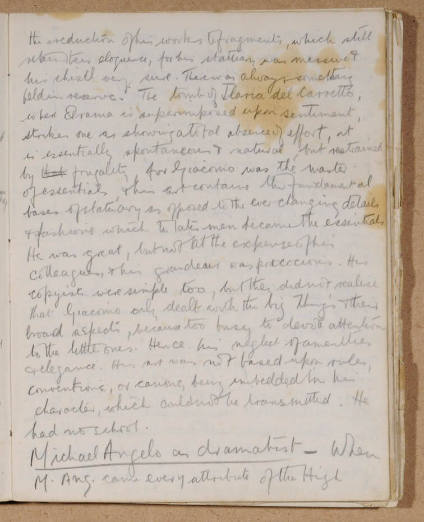 the reduction of his works to fragments, which still
retain their eloquence, for his statuary was massive &
his chisel very sure. There was always something
held in reserve. The tomb of Ilaria del Carretto,
where Drama is superimposed upon sentiment,
strikes one as showing a total absence of effort, it
is essentially spontaneous & natural, but restrained
by frugality, for Giacomo was the master
of essentials, & his art contains the fundamental
bases of statuary as opposed to the ever changing details
& fashions which to later men became the essentials
He was great, but not at the expense of his
colleagues, & his grandeur was precocious. His
copyists were simple too, but they did not realise
that Giacomo only dealt with the big things & their
broad aspects, because too busy to devote attention
to the little ones. Hence his neglect of amenities
& elegance. His art was not based upon rules,
conventions, or canons, being imbedded in his
character, which could not be transmitted. He
had no school.
Michael Angelo as dramatist – When
M. Ang. came every attribute of the High